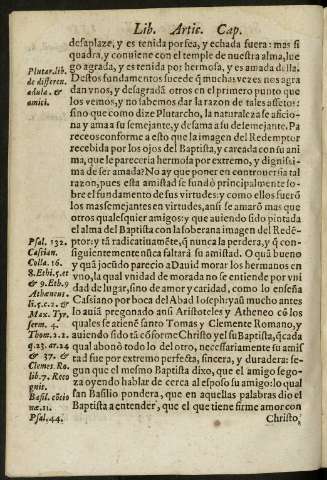 Lib. Artic. Cap.
desaplaze, y es tenida por fea, y echada fuera: mas si
quadra, y conuiene con el temple de nuestra alma, lue
go agrada, y es tenida por hermosa, y es amada della.
Destos fundamentos sucede q̃ muchas vezes nos agra
dan vnos, y desagradã otros en el primero punto que
los vemos, y no sabemos dar la razon de tales afetos:
sino que como dize Plutarcho, la naturaleza se aficio
na y ama a su semejante, y desama a su desemejante. Pa
receos conforme a esto que la imagen del Redemptor
recebida por los ojos del Baptista, y careada con su ani
ma, que le pareceria hermosa por extremo, y dignissi
ma de ser amada? No ay que poner en controuersia tal
razon, pues esta amistad se fundò principalmente so-
bre el fundamento de sus virtudes: y como ellos fuerõ
los mas semejantes en virtudes, ansi se amarõ mas que
otros qualesquier amigos: y que auiendo sido pintada
el alma del Baptista con la soberana imagen del Redẽ-
ptor: y tã radicatiuamẽte, q̃ nunca la perdera, y q̃ con-
siguientemente nũca faltarà su amistad. O quã bueno
y quã jocũdo parecio a Dauid morar los hermanos en
vno, la qual vnidad de morada no se entiende por vni
dad de lugar, sino de amor y caridad, como lo enseña
Cassiano por boca del Abad Ioseph: yaũ mucho antes
lo auiã pregonado ansi Aristoteles y Atheneo cõ los
quales se atienẽ santo Tomas y Clemente Romano, y
auiendo sido tã cõforme Christo y el su Baptista, q̃ cada
qual abonò todo lo del otro, necessariamente su amis
tad fue por extremo perfecta, sincera, y duradera: se-
gun que el mesmo Baptista dixo, que el amigo se go-
za oyendo hablar de cerca al esposo su amigo: lo qual
san Basilio pondera, que en aquellas palabras dio el
Baptista a entender, que el que tiene firme amor con
Christo,
Plutar. lib.
de differen.
adula. &
amici.
Psal. 132.
Cassian.
Colla. 16.
8. Ethi. 5. et
& 9. Eth. 9
Atheneus.
li. 5. c. 2. &
Max. Tyr.
serm. 4.
Thom. 2.2.
q. 23. ar. 24
& 37. &
Clemes Ro.
lib. 7. Reco
gnit.
Basil. cõtio
næ. 11.
Psal. 44.